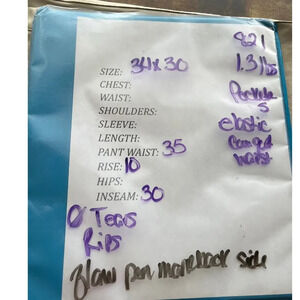 821
SIZE: 34x30
1.3 lbs
CHEST:
WAIST:
SHOULDERS:
SLEEVE:
elastic
LENGTH:
PANT WAIST: 35
waist
RISE: 10
HIPS:
INSEAM: 30
0 Tears
Rips
flaw pen mark back side